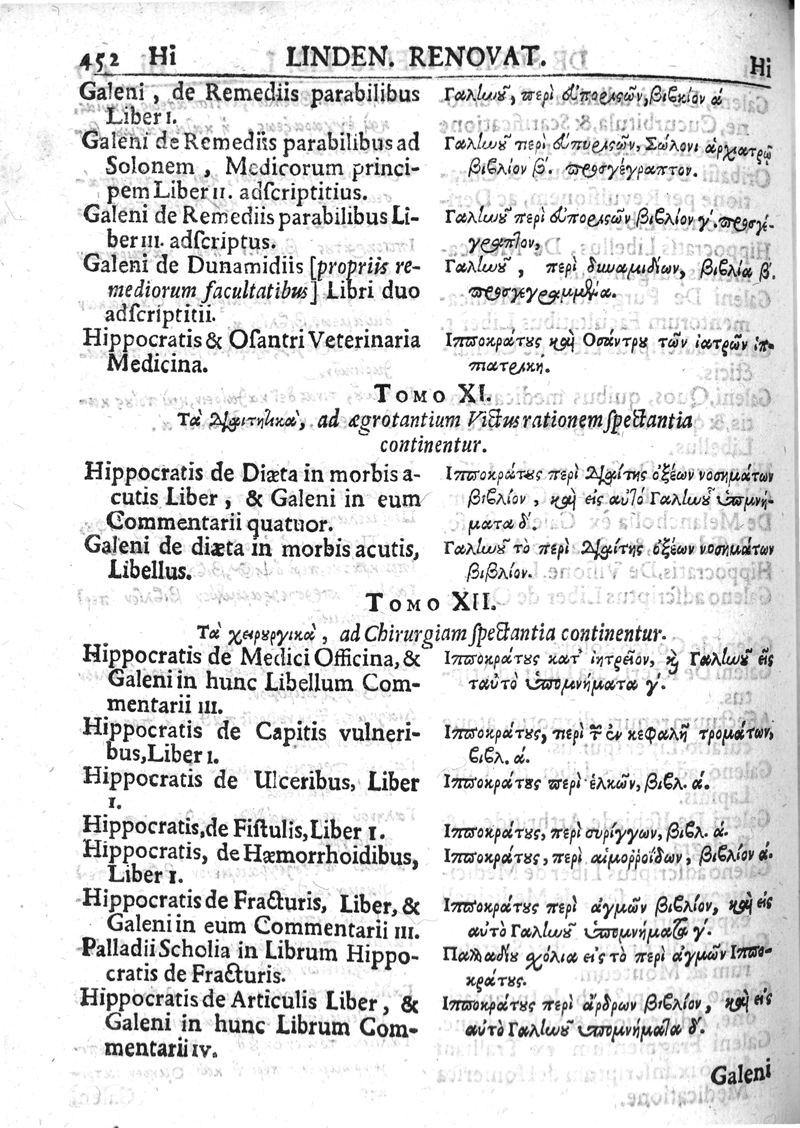 452 Hi LINDEN. RENOVAT. Hi
Galeni, de Remediis parabilibus
Liber I.
Galeni de Remediis parabilibus ad
Solonem, Medicorum princi-
pem Liber II. adſcriptitius.
Galeni de Remediis parabilibus Li-
ber III. adſcriptus.
Galeni de Dunamidiis [propriis re-
mediorum facultatibus] Libri duo
adſcriptitii.
Hippocratis & Oſantri Veterinaria
Medicina.
Γαλίωοῦ, περὶ ἀυπορίςων, βιβλίον ά
Γαλίωοῦ περὶ ἀυπορίςων, Σώλονι ἀρχιατρῷ
βιβλίον β΄. προσγέγραπτον.
Γαλίωοῦ περὶ ἀυπορίςων βιβλίον γ΄. προσγέ-
γραπτον,
Γαλίωοῦ, περὶ δυναμιδίων, βιβλία β΄.
προσγεγραμμένα.
Ιπποκράτους καὶ Οσάντρου τῶν ἰατρῶν ἱπ-
πιατρική.
TOMO XI.
Τὰ Διαιτητικὰ, ad ægrotantium Victus rationem ſpectantia
continentur.
Hippocratis de Diæta in morbis a-
cutis Liber, & Galeni in eum
Commentarii quatuor.
Galeni de diæta in morbis acutis,
Libellus.
Ιπποκράτους περὶ Διαίτης ὀξέων νοσημάτων
βιβλίον, καὶ εἰς αὐτὸ Γαλίωοῦ ὑπομνή-
ματα δ΄.
Γαλίωοῦ τὸ περὶ Διαίτης ὀξέων νοσημάτων
βιβλίον.
TOMO XII.
Τὰ χειρουργικὰ, ad Chirurgiam ſpectantia continentur.
Hippocratis de Medici Officina, &
Galeni in hunc Libellum Com-
mentarii III.
Hippocratis de Capitis vulneri-
bus, Liber I.
Hippocratis de Ulceribus, Liber
I.
Hippocratis, de Fiſtulis, Liber I.
Hippocratis, de Hæmorrhoidibus,
Liber I.
Hippocratis de Fracturis, Liber, &
Galeni in eum Commentarii III.
Palladii Scholia in Librum Hippo-
cratis de Fracturis.
Hippocratis de Articulis Liber, &
Galeni in hunc Librum Com-
mentarii IV.
Ιπποκράτους κατ᾽ ἰητρεῖον, καὶ Γαλίωοῦ εἰς
ταὐτὸ ὑπομνήματα γ΄.
Ιπποκράτους, περὶ τῶν ἐν κεφαλῇ τρομάτων,
βιβλ. ά.
Ιπποκράτους περὶ ἑλκῶν, βιβλ. ά.
Ιπποκράτους, περὶ συρίγγων, βιβλ. ά.
Ιπποκράτους, περὶ αἱμοῤῥοΐδων, βιβλίον ά.
Ιπποκράτους περὶ ἀγμῶν βιβλίον, καὶ εἰς
αὐτὸ Γαλίωοῦ ὑπομνήματα γ΄.
Παλλαδίου σχόλια εἰς τὸ περὶ ἀγμῶν Ιππο-
κράτους.
Ιπποκράτους περὶ ἄρθρων βιβλίον, καὶ εἰς
αὐτὸ Γαλίωοῦ ὑπομνήματα δ΄.
Galeni